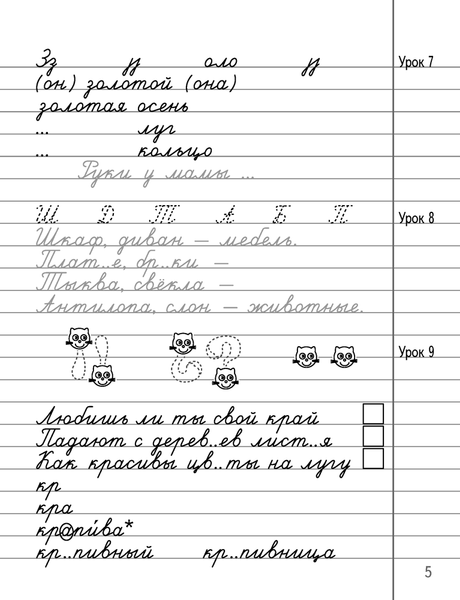 Зз у оло у Урок 7
(он) золотой (она)
золотая осень
... луг
... кольцо
Руки у мамы ...
Ш Д Т А Б П Урок 8
Шкаф, диван — мебель.
Плат..е, бр..ки —
Тыква, свёкла —
Антилопа, слон — животные.
Урок 9
Любишь ли ты свой край
Падают с дерев..ев лист..я
Как красивы цв..ты на лугу
кр
кра
кр@пи́ва*
кр..пивный кр..пивница
5